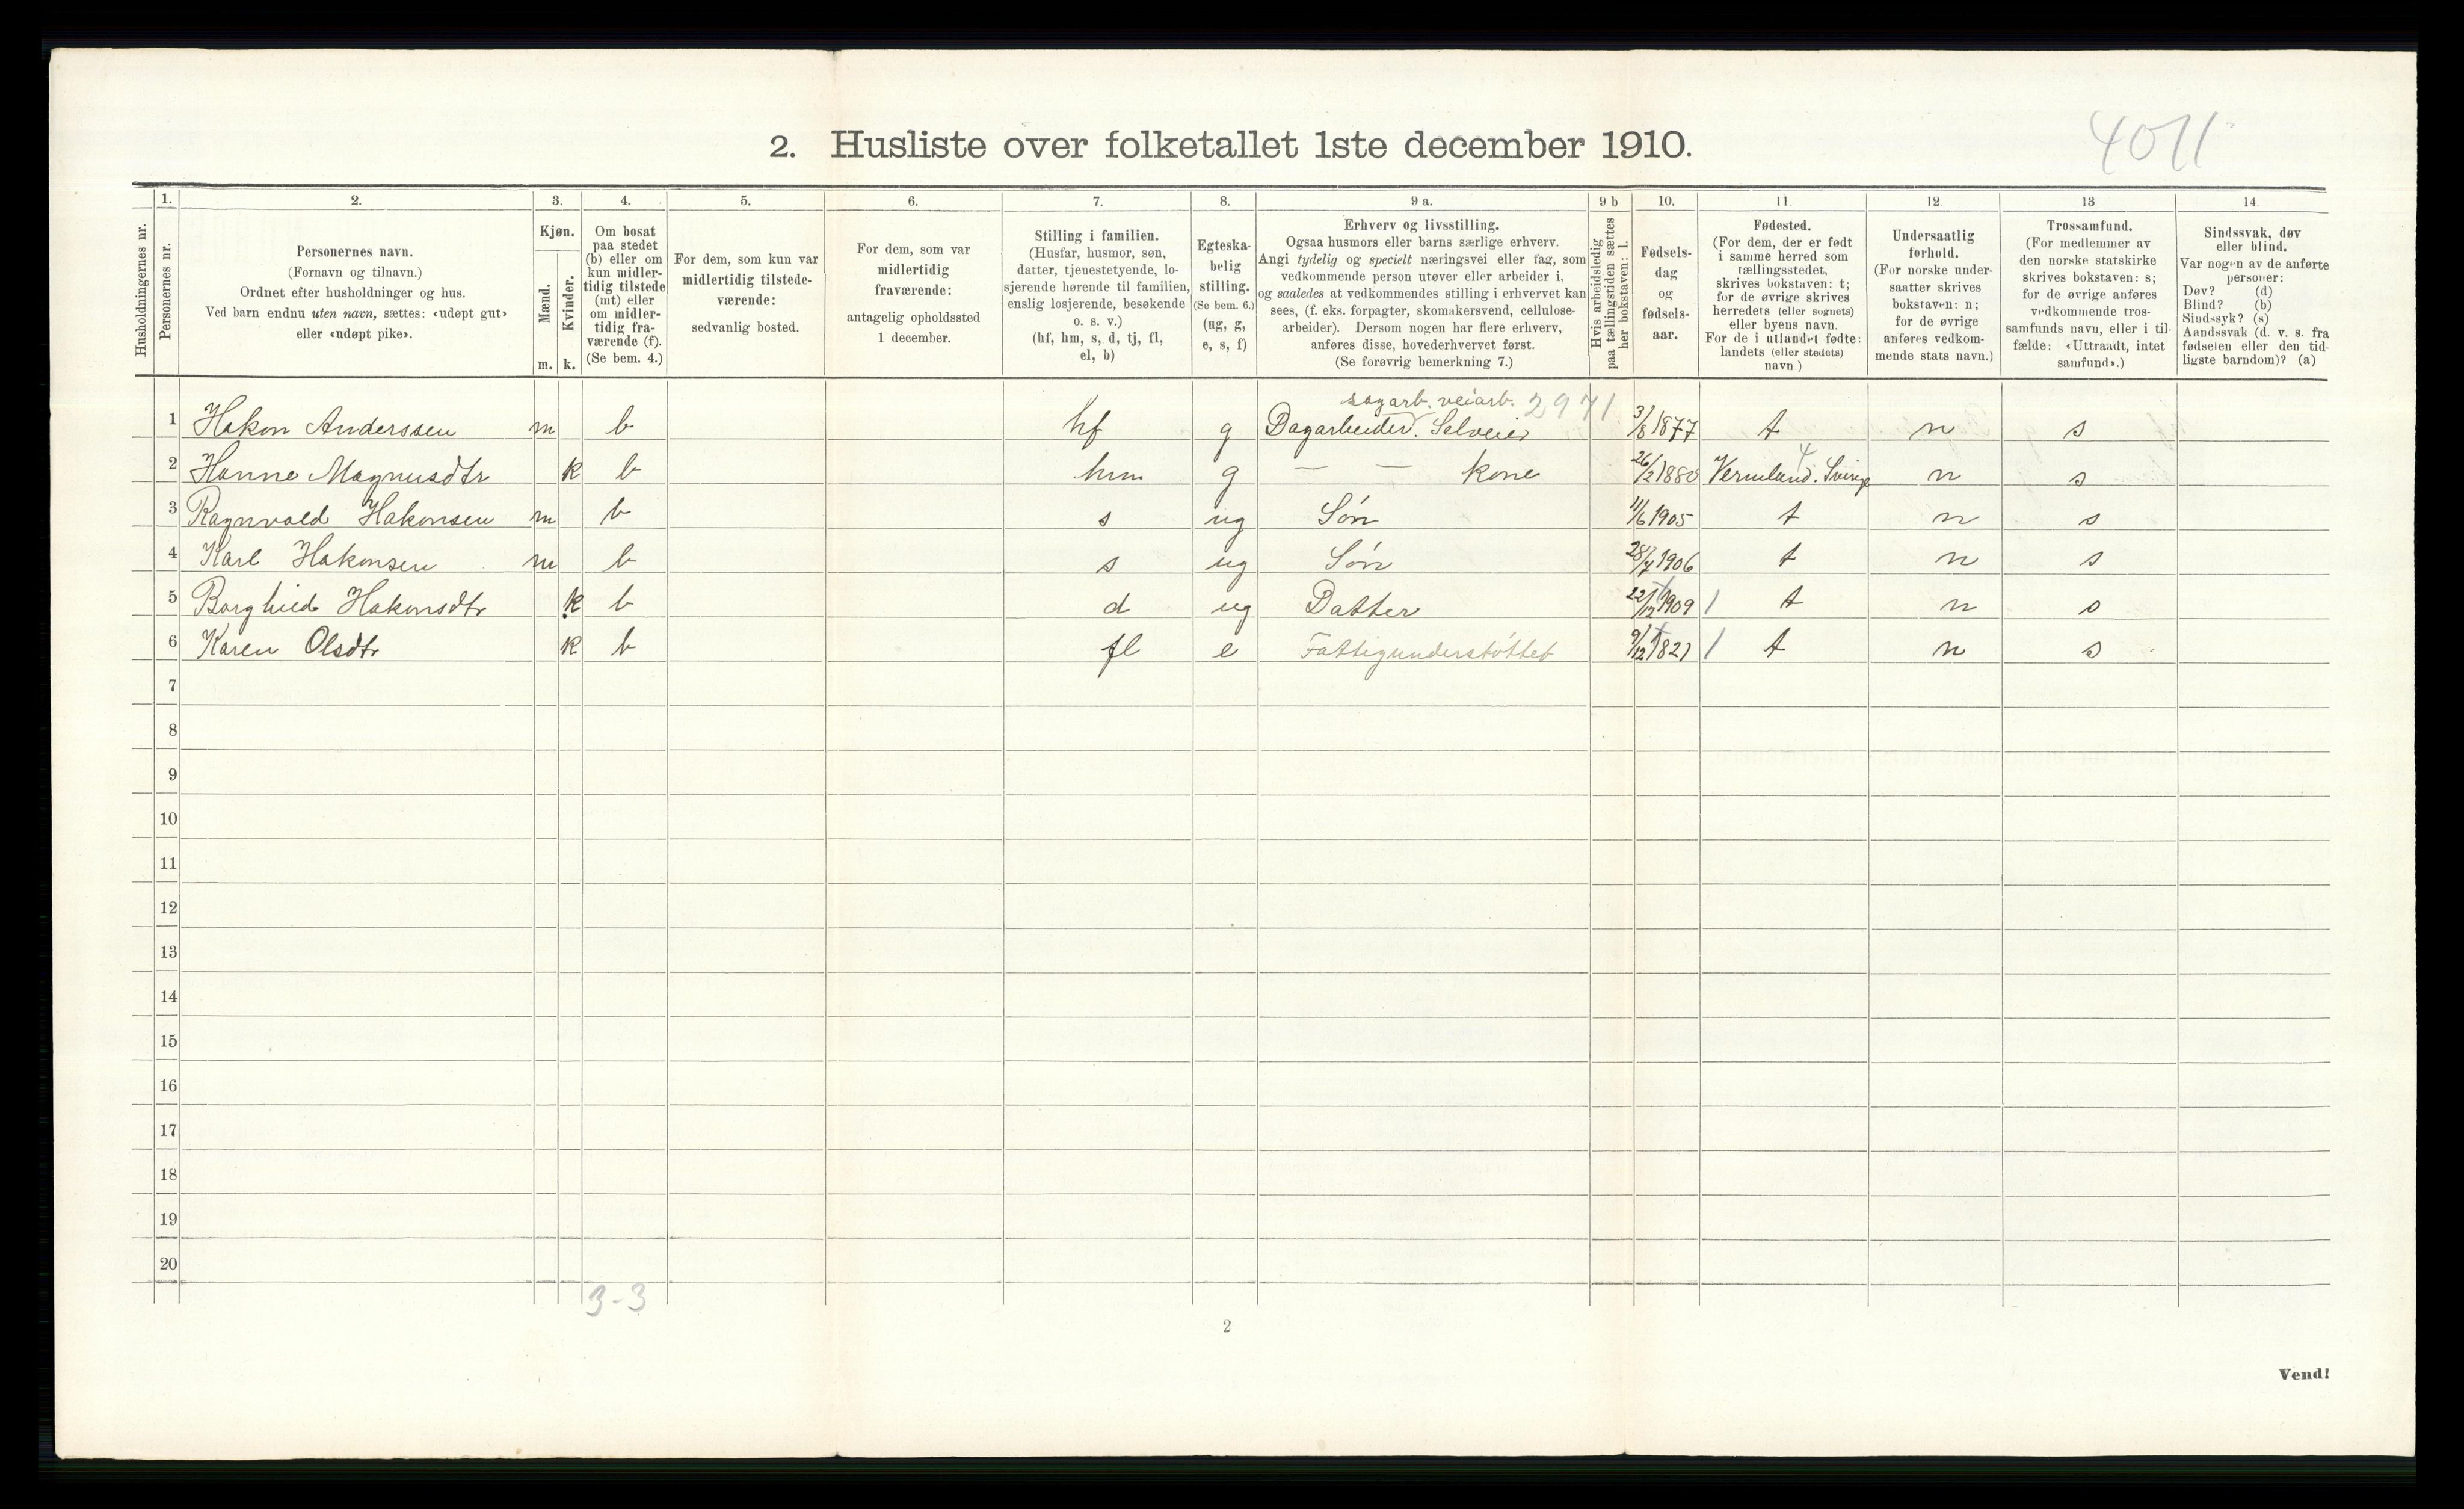 4011
2. Husliste over folketallet 1ste december 1910.
1. 2. 3. 4. 5. 6. 7. 8. 9 a. 9 b 10. 11. 12. 13 14.
Husholdningernes nr.
Personernes nr.
Personernes navn.
(Fornavn og tilnavn.)
Ordnet efter husholdninger og hus.
Ved barn endnu uten navn, sættes: «udøpt gut»
eller «udøpt pike».
Kjøn.
Mænd.
Kvinder.
m. k.
Om bosat
paa stedet
(b) eller om
kun midler-
tidig tilstede
(mt) eller
om midler-
tidig fra-
værende (f).
(Se bem. 4.)
For dem, som kun var
midlertidig tilstede-
værende:
sedvanlig bosted.
For dem, som var
midlertidig
fraværende:
antagelig opholdssted
1 december.
Stilling i familien.
(Husfar, husmor, søn,
datter, tjenestetyende, lo-
sjerende hørende til familien,
enslig losjerende, besøkende
o. s. v.)
(hf, hm, s, d, tj, fl,
el, b)
Egteska-
belig
stilling.
(Se bem. 6.)
(ug, g,
e, s, f)
Erhverv og livsstilling.
Ogsaa husmors eller barns særlige erhverv.
Angi tydelig og specielt næringsvei eller fag, som
vedkommende person utøver eller arbeider i,
og saaledes at vedkommendes stilling i erhvervet kan
sees, (f. eks. forpagter, skomakersvend, cellulose-
arbeider). Dersom nogen har flere erhverv,
anføres disse, hovederhvervet først.
(Se forøvrig bemerkning 7.)
Hvis arbeidsledig
paa tællingstiden sættes
her bokstaven: l.
Fødsels-
dag
og
fødsels-
aar.
Fødested.
(For dem, der er født
i samme herred som
tællingsstedet,
skrives bokstaven: t;
for de øvrige skrives
herredets (eller sognets)
eller byens navn.
For de i utlandet fødte:
landets (eller stedets)
navn )
Undersaatlig
forhold.
(For norske under-
saatter skrives
bokstaven: n;
for de øvrige
anføres vedkom-
mende stats navn.)
Trossamfund.
(For medlemmer av
den norske statskirke
skrives bokstaven: s;
for de øvrige anføres
vedkommende tros-
samfunds navn, eller i til-
fælde: «Uttraadt, intet
samfund».)
Sindssvak, døv
eller blind.
Var nogen av de anførte
personer:
Døv? (d)
Blind? (b)
Sindssyk? (s)
Aandssvak (d. v. s. fra
fødselen eller den tid-
ligste barndom)? (a)
sagarb. veiarb. 2971
1 Hakon Anderssen m b hf g Dagarbeider. Selveier 3/8 1877 t n s
4
2 Hanne Magnusdtr k b hm g — — kone 26/2 1880 Vermland. Sverige n s
3 Ragnvald Hakonsen m b s ug Søn 11/6 1905 t n s
4 Karl Hakonsen m b s ug Søn 28/7 1906 t n s
5 Borghild Hakonsdtr k b d ug Datter 22/12 1909 1 t n s
6 Karen Olsdtr k b fl e Fattigunderstøttet 9/12 1821 1 t n s
7
8
9
10
11
12
13
14
15
16
17
18
19
20
3-3
2
Vend!